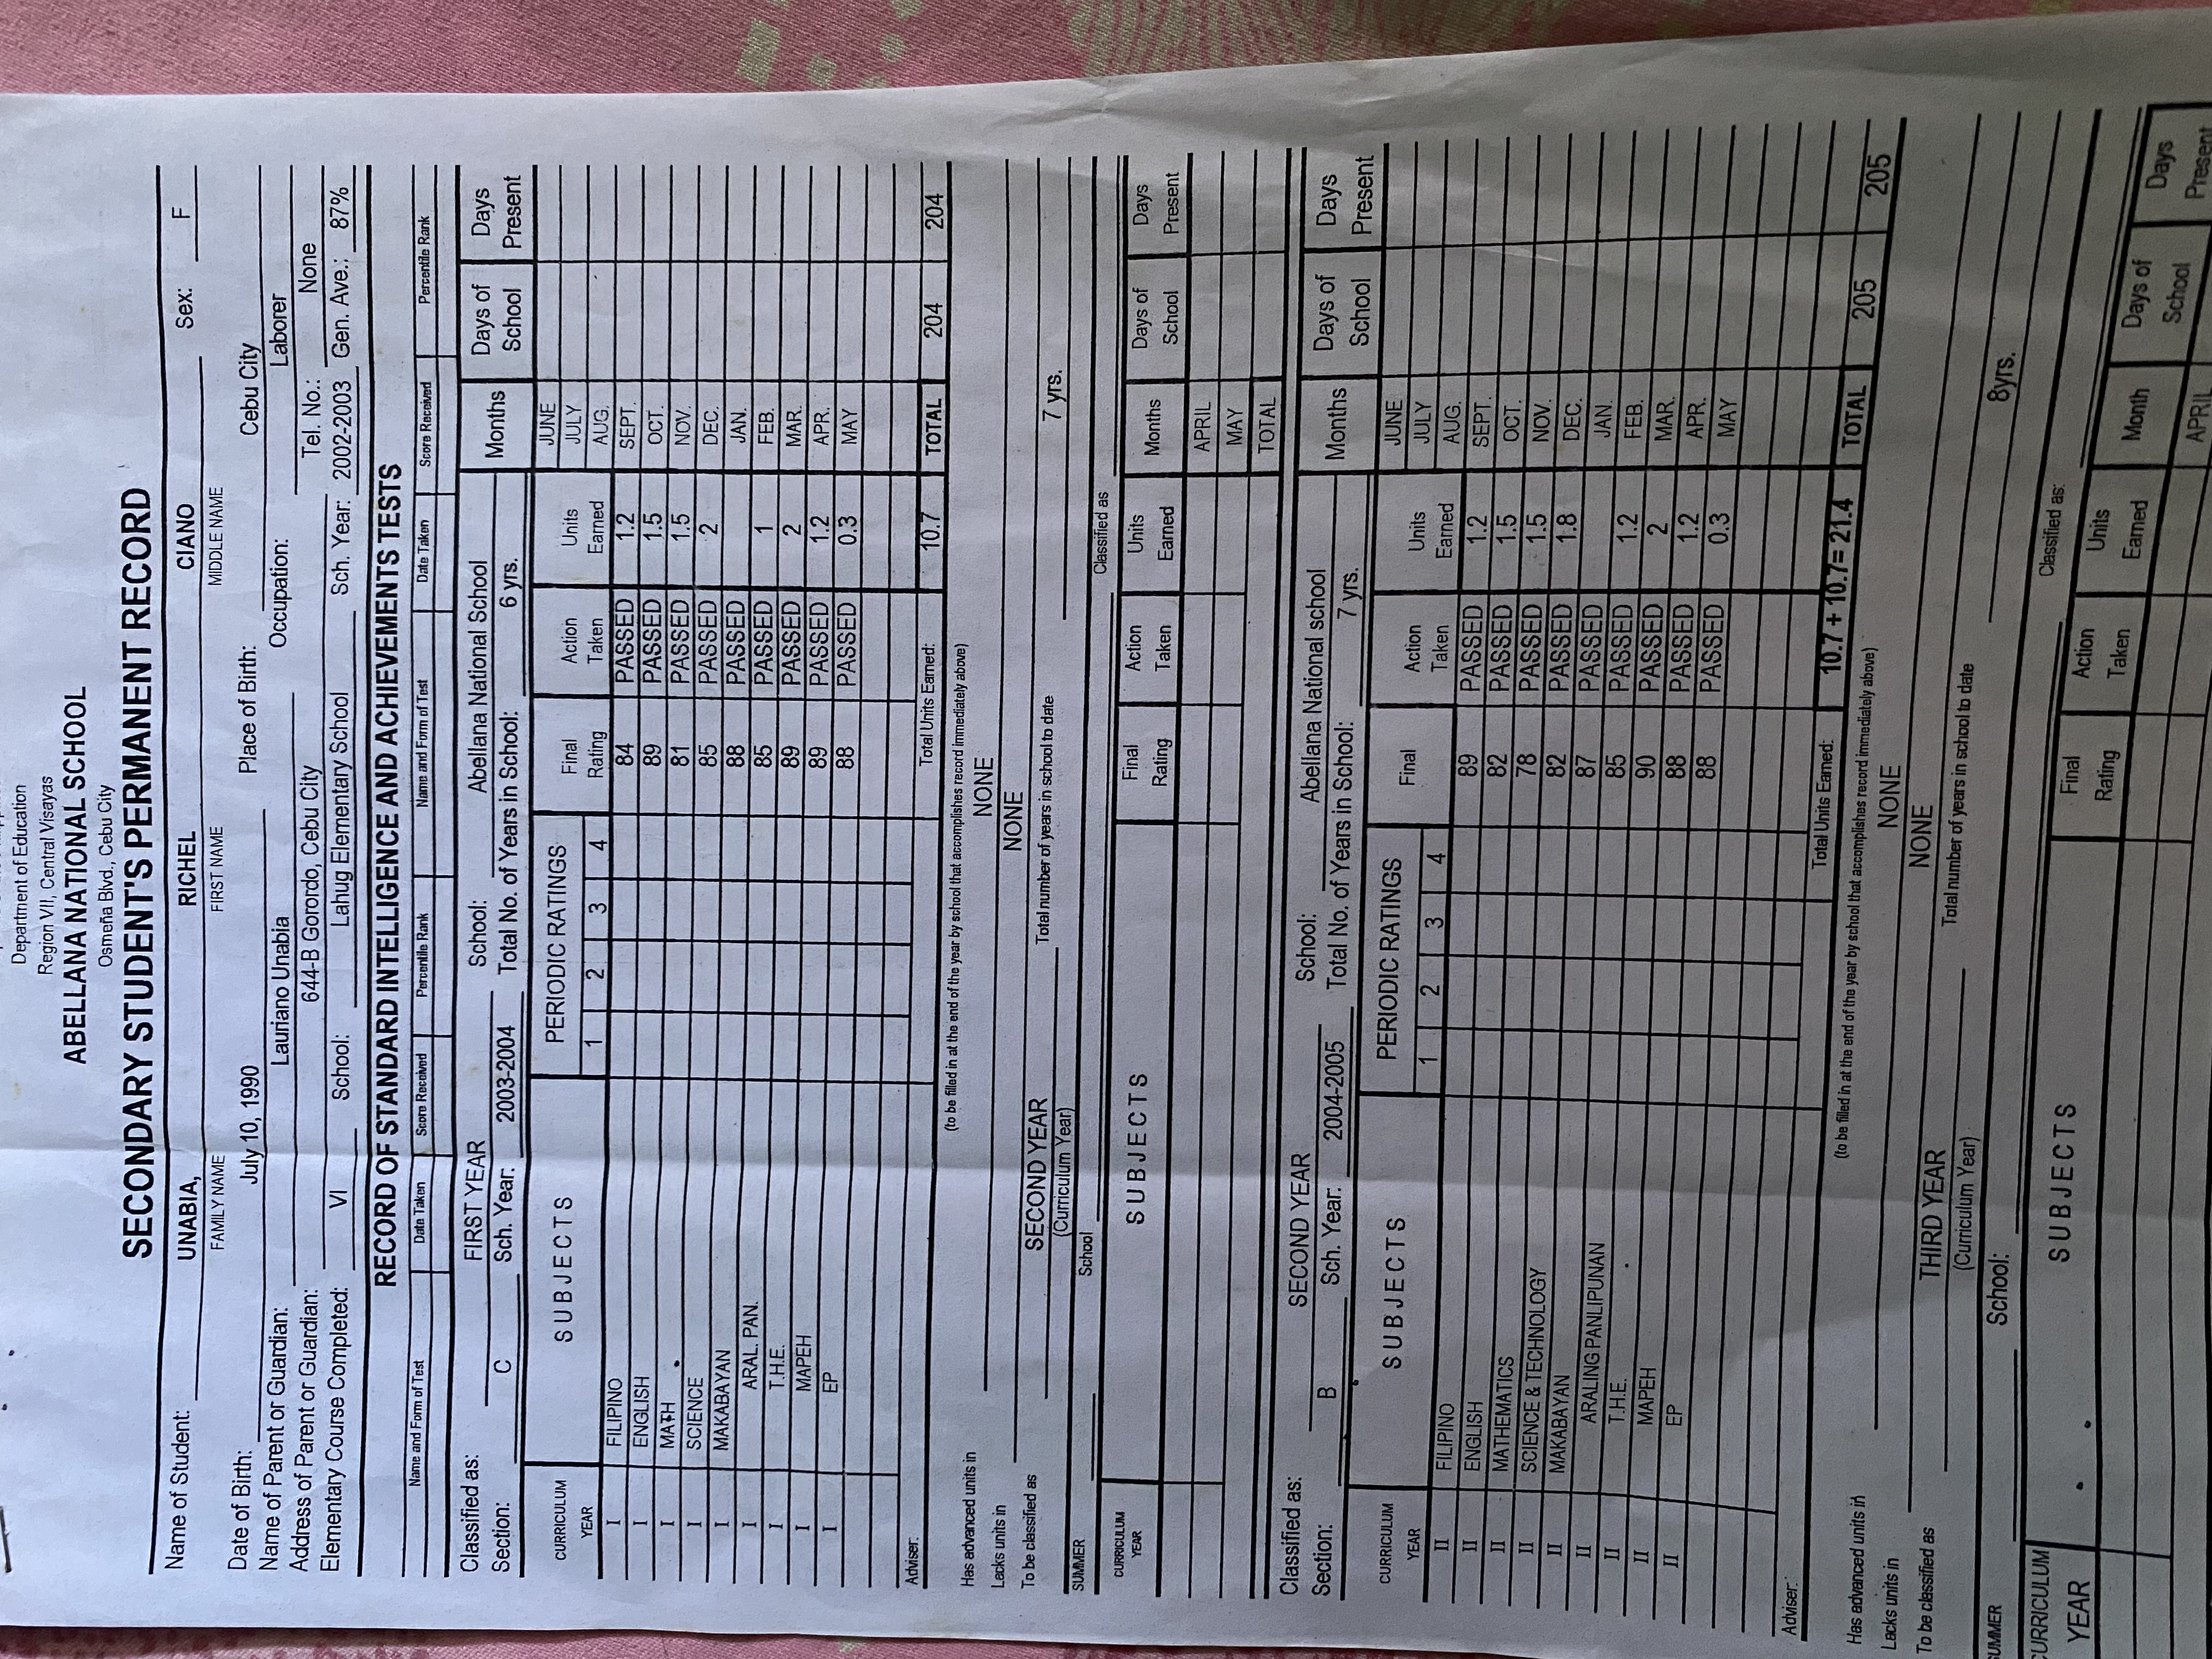 Department of Education
Region VII, Central Visayas
ABELLANA NATIONAL SCHOOL
Osmeña Blvd., Cebu City
SECONDARY STUDENT'S PERMANENT RECORD
Name of Student: UNABIA, RICHEL CIANO Sex: F
FAMILY NAME FIRST NAME MIDDLE NAME
Date of Birth: July 10, 1990 Place of Birth: Cebu City
Name of Parent or Guardian: Lauriano Unabia Occupation: Laborer
Address of Parent or Guardian: 644-B Gorordo, Cebu City Tel. No.: None
Elementary Course Completed: VI School: Lahug Elementary School Sch. Year: 2002-2003 Gen. Ave.; 87%
RECORD OF STANDARD INTELLIGENCE AND ACHIEVEMENTS TESTS
Name and Form of Test Date Taken Score Received Percentile Rank Name and Form of Test Date Taken Score Received Percentile Rank
Classified as: FIRST YEAR School: Abellana National School Months Days of School Days Present
Section: C Sch. Year: 2003-2004 Total No. of Years in School: 6 yrs.
CURRICULUM YEAR SUBJECTS PERIODIC RATINGS 1 2 3 4 Final Rating Action Taken Units Earned
JUNE
JULY
AUG.
I FILIPINO 84 PASSED 1.2 SEPT.
I ENGLISH 89 PASSED 1.5 OCT.
I MATH 81 PASSED 1.5 NOV.
I SCIENCE 85 PASSED 2 DEC.
I MAKABAYAN 88 PASSED JAN.
I ARAL. PAN. 85 PASSED 1 FEB.
I T.H.E. 89 PASSED 2 MAR.
I MAPEH 89 PASSED 1.2 APR.
I EP 88 PASSED 0.3 MAY
Adviser: Total Units Earned: 10.7 TOTAL 204 204
(to be filled in at the end of the year by school that accomplishes record immediately above)
Has advanced units in NONE
Lacks units in NONE
To be classified as SECOND YEAR Total number of years in school to date 7 yrs.
(Curriculum Year)
SUMMER School Classified as
CURRICULUM YEAR SUBJECTS Final Rating Action Taken Units Earned Months Days of School Days Present
APRIL
MAY
TOTAL
Classified as: SECOND YEAR School: Abellana National school Months Days of School Days Present
Section: B Sch. Year: 2004-2005 Total No. of Years in School: 7 yrs.
CURRICULUM YEAR SUBJECTS PERIODIC RATINGS 1 2 3 4 Final Action Taken Units Earned
JUNE
JULY
AUG.
II FILIPINO 89 PASSED 1.2 SEPT.
II ENGLISH 82 PASSED 1.5 OCT.
II MATHEMATICS 78 PASSED 1.5 NOV.
II SCIENCE & TECHNOLOGY 82 PASSED 1.8 DEC.
II MAKABAYAN 87 PASSED JAN.
II ARALING PANLIPUNAN 85 PASSED 1.2 FEB.
II T.H.E. 90 PASSED 2 MAR.
II MAPEH 88 PASSED 1.2 APR.
II EP 88 PASSED 0.3 MAY
Adviser: Total Units Earned: 10.7 + 10.7= 21.4 TOTAL 205 205
(to be filled in at the end of the year by school that accomplishes record immediately above)
Has advanced units in NONE
Lacks units in NONE
To be classified as THIRD YEAR Total number of years in school to date 8yrs.
(Curriculum Year)
SUMMER School: Classified as:
CURRICULUM YEAR SUBJECTS Final Rating Action Taken Units Earned Month Days of School Days Present
APRIL